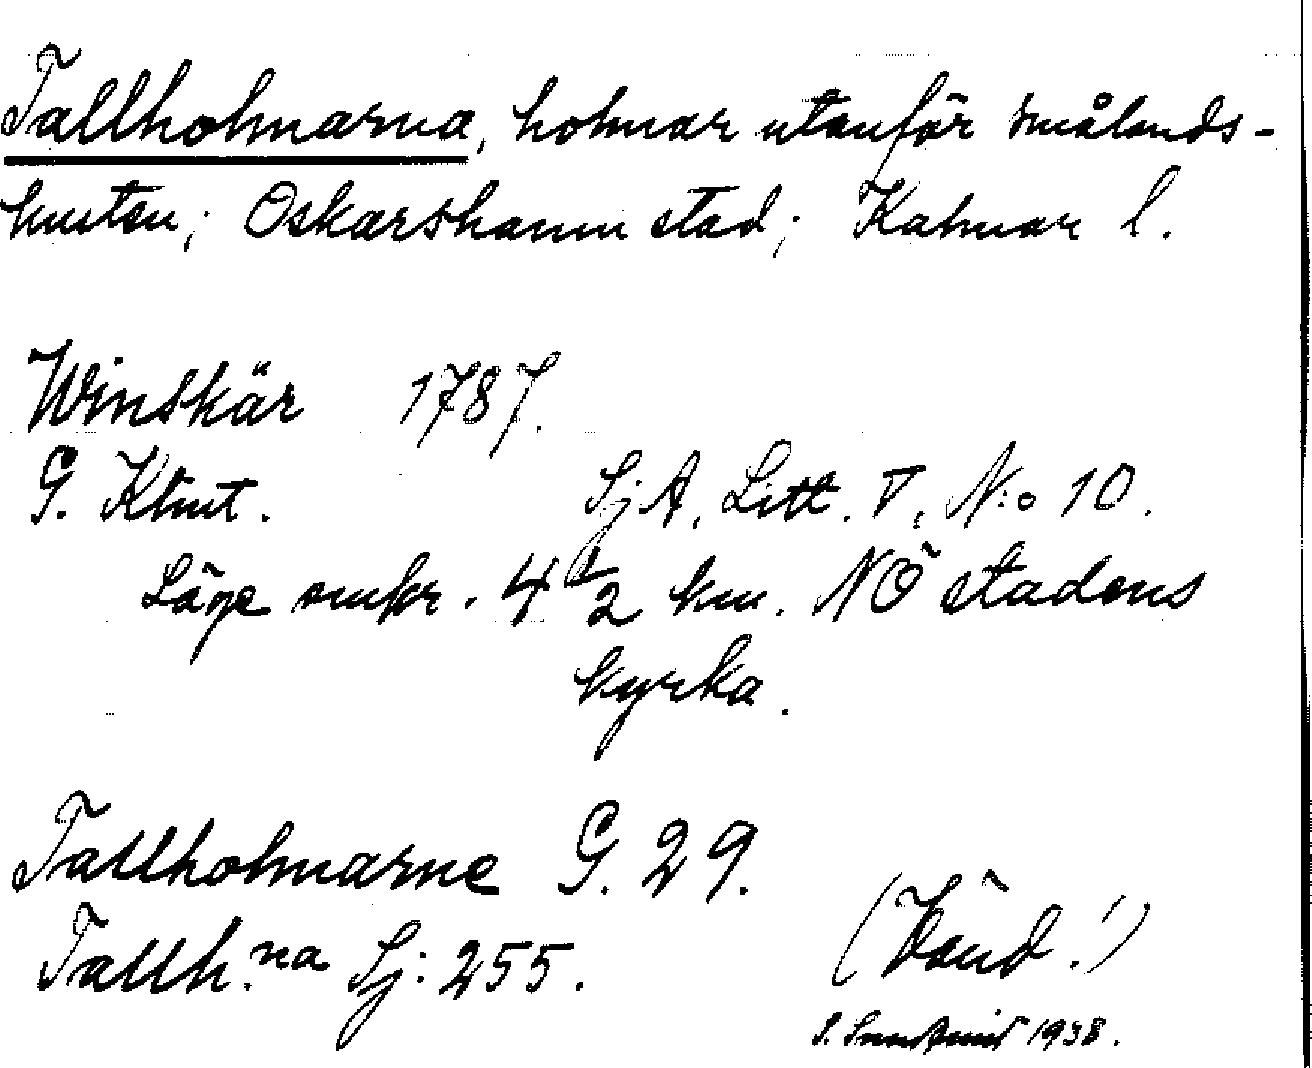 Tallholmarna, holmar utanför smålands-
kusten; Oskarshamn stad; Kalmar l.
Winskär 1787.
G. Klint. SjA, Litt. V, N:o 10.
Läge omkr. 4 1/2 km. NÖ stadens
kyrka.
Tallholmarne G. 29.
Tallh.na Sj: 255.
(Vänd!)
S. Sundqvist 1938.